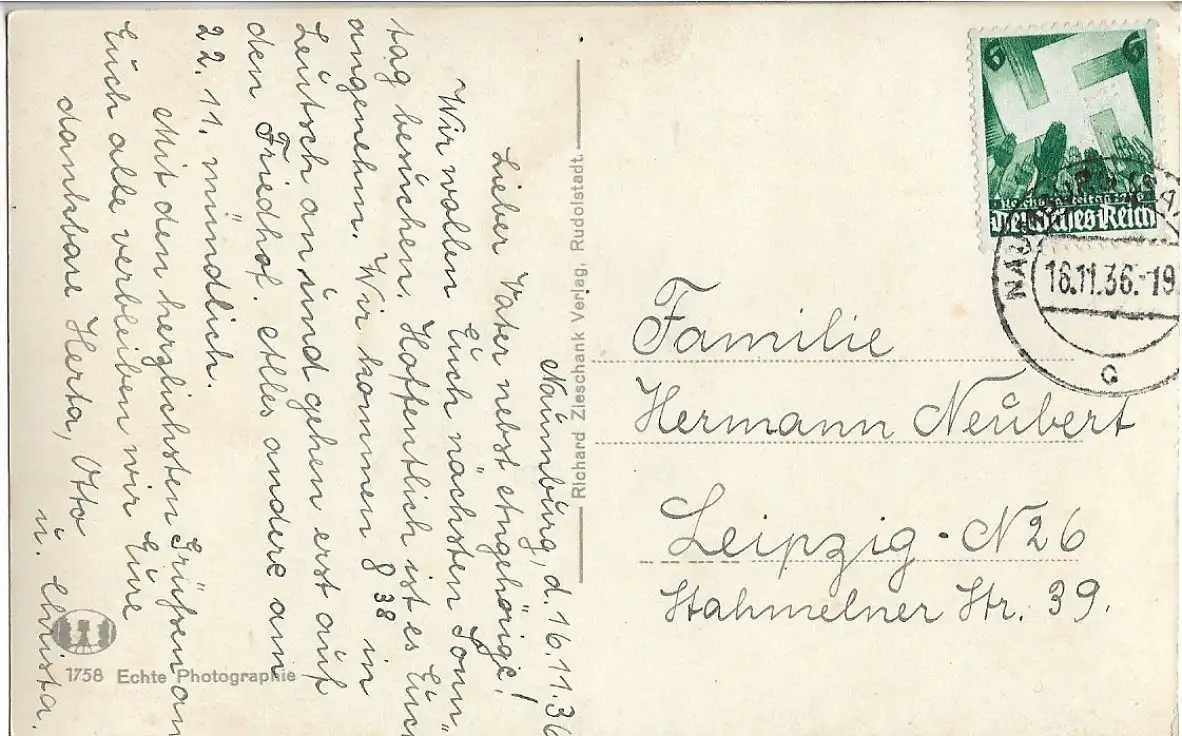 Naumburg, d. 16.11.36
Lieber Vater nebst Angehörige!
Wir wollen Euch nächsten Sonn-
tag besuchen. Hoffentlich ist es Euch
angenehm. Wir kommen 8 38 in
Leutsch an und gehen erst auf
den Friedhof. Alles andere am
22.11. mündlich.
Mit den herzlichsten Grüßen an
Euch alle verbleiben wir Eure
dankbare Herta, Otto
u. Christa.
1758 Echte Photographie
Richard Zieschank Verlag, Rudolstadt.
6 6
Deutsches Reich
16.11.36.-19
c
Familie
Hermann Neubert
Leipzig · N 26
Stahmelner Str. 39.